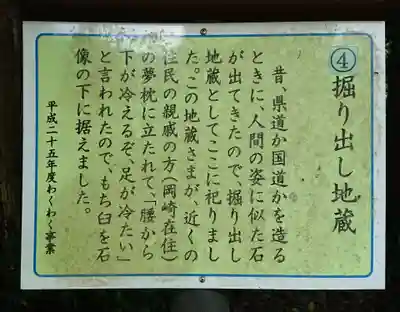 ④掘り出し地蔵
昔、県道か国道かを造る
ときに、人間の姿に似た石
が出てきたので、掘り出し
地蔵としてここに祀りまし
た。この地蔵さまが、近くの
住民の親戚の方（岡崎在住）
の夢枕に立たれて、「腰から
下が冷えるぞ、足が冷たい」
と言われたので、もち臼を石
像の下に据えました。
平成二十五年度わくわく事業